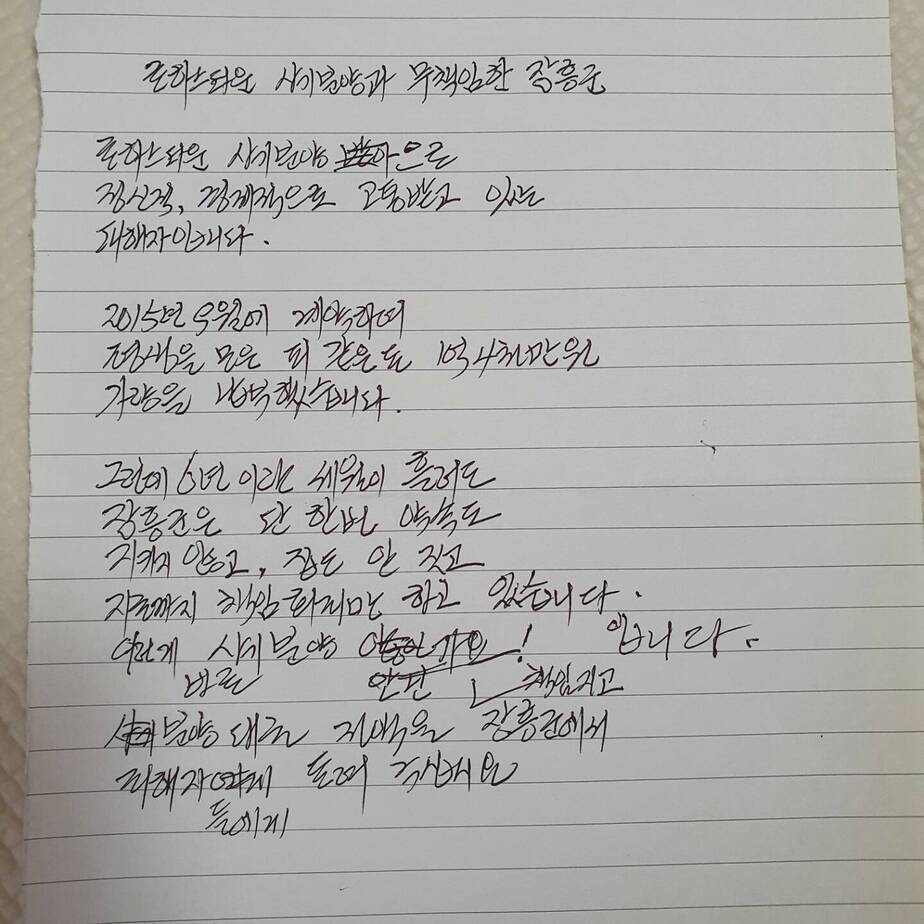 로하스타운 사기분양과 무책임한 장흥군
로하스타운 사기분양으로
정신적, 경제적으로 고통받고 있는
피해자입니다.
2015년 9월에 계약하며
전생을 모은 피 같은 돈 1억4천만원
가량을 납부했습니다.
그런데 6년이란 세월이 흘러도
장흥군은 단 한번 약속도
지키지 않고, 집도 안 짓고
지금까지 책임회피만 하고 있습니다.
이런게 사기분양 입니다.
바로 책임지고
분양대금 전액을 장흥군에서
피해자 돌려 주십시요
들에게